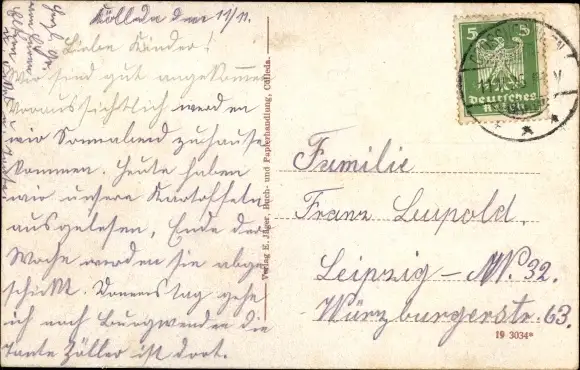 Kölleda den 11/11.
Liebe Kinder!
Wir sind gut angekommen
Voraussichtlich werden
wir Sonnabend zuhause
kommen. Heute haben
wir unsere Kartoffeln
ausgelesen, Ende der
Woche werden sie abge
schickt. Donnerstag gehe
ich nach Burgwenden die
Tante Zöller ist dort.
Verlag E. Jäger, Buch- und Papierhandlung, Cölleda.
5 5
Deutsches
Familie
Franz Luppold,
Leipzig - W. 32.
Würzburgerstr. 63.
19 3034*